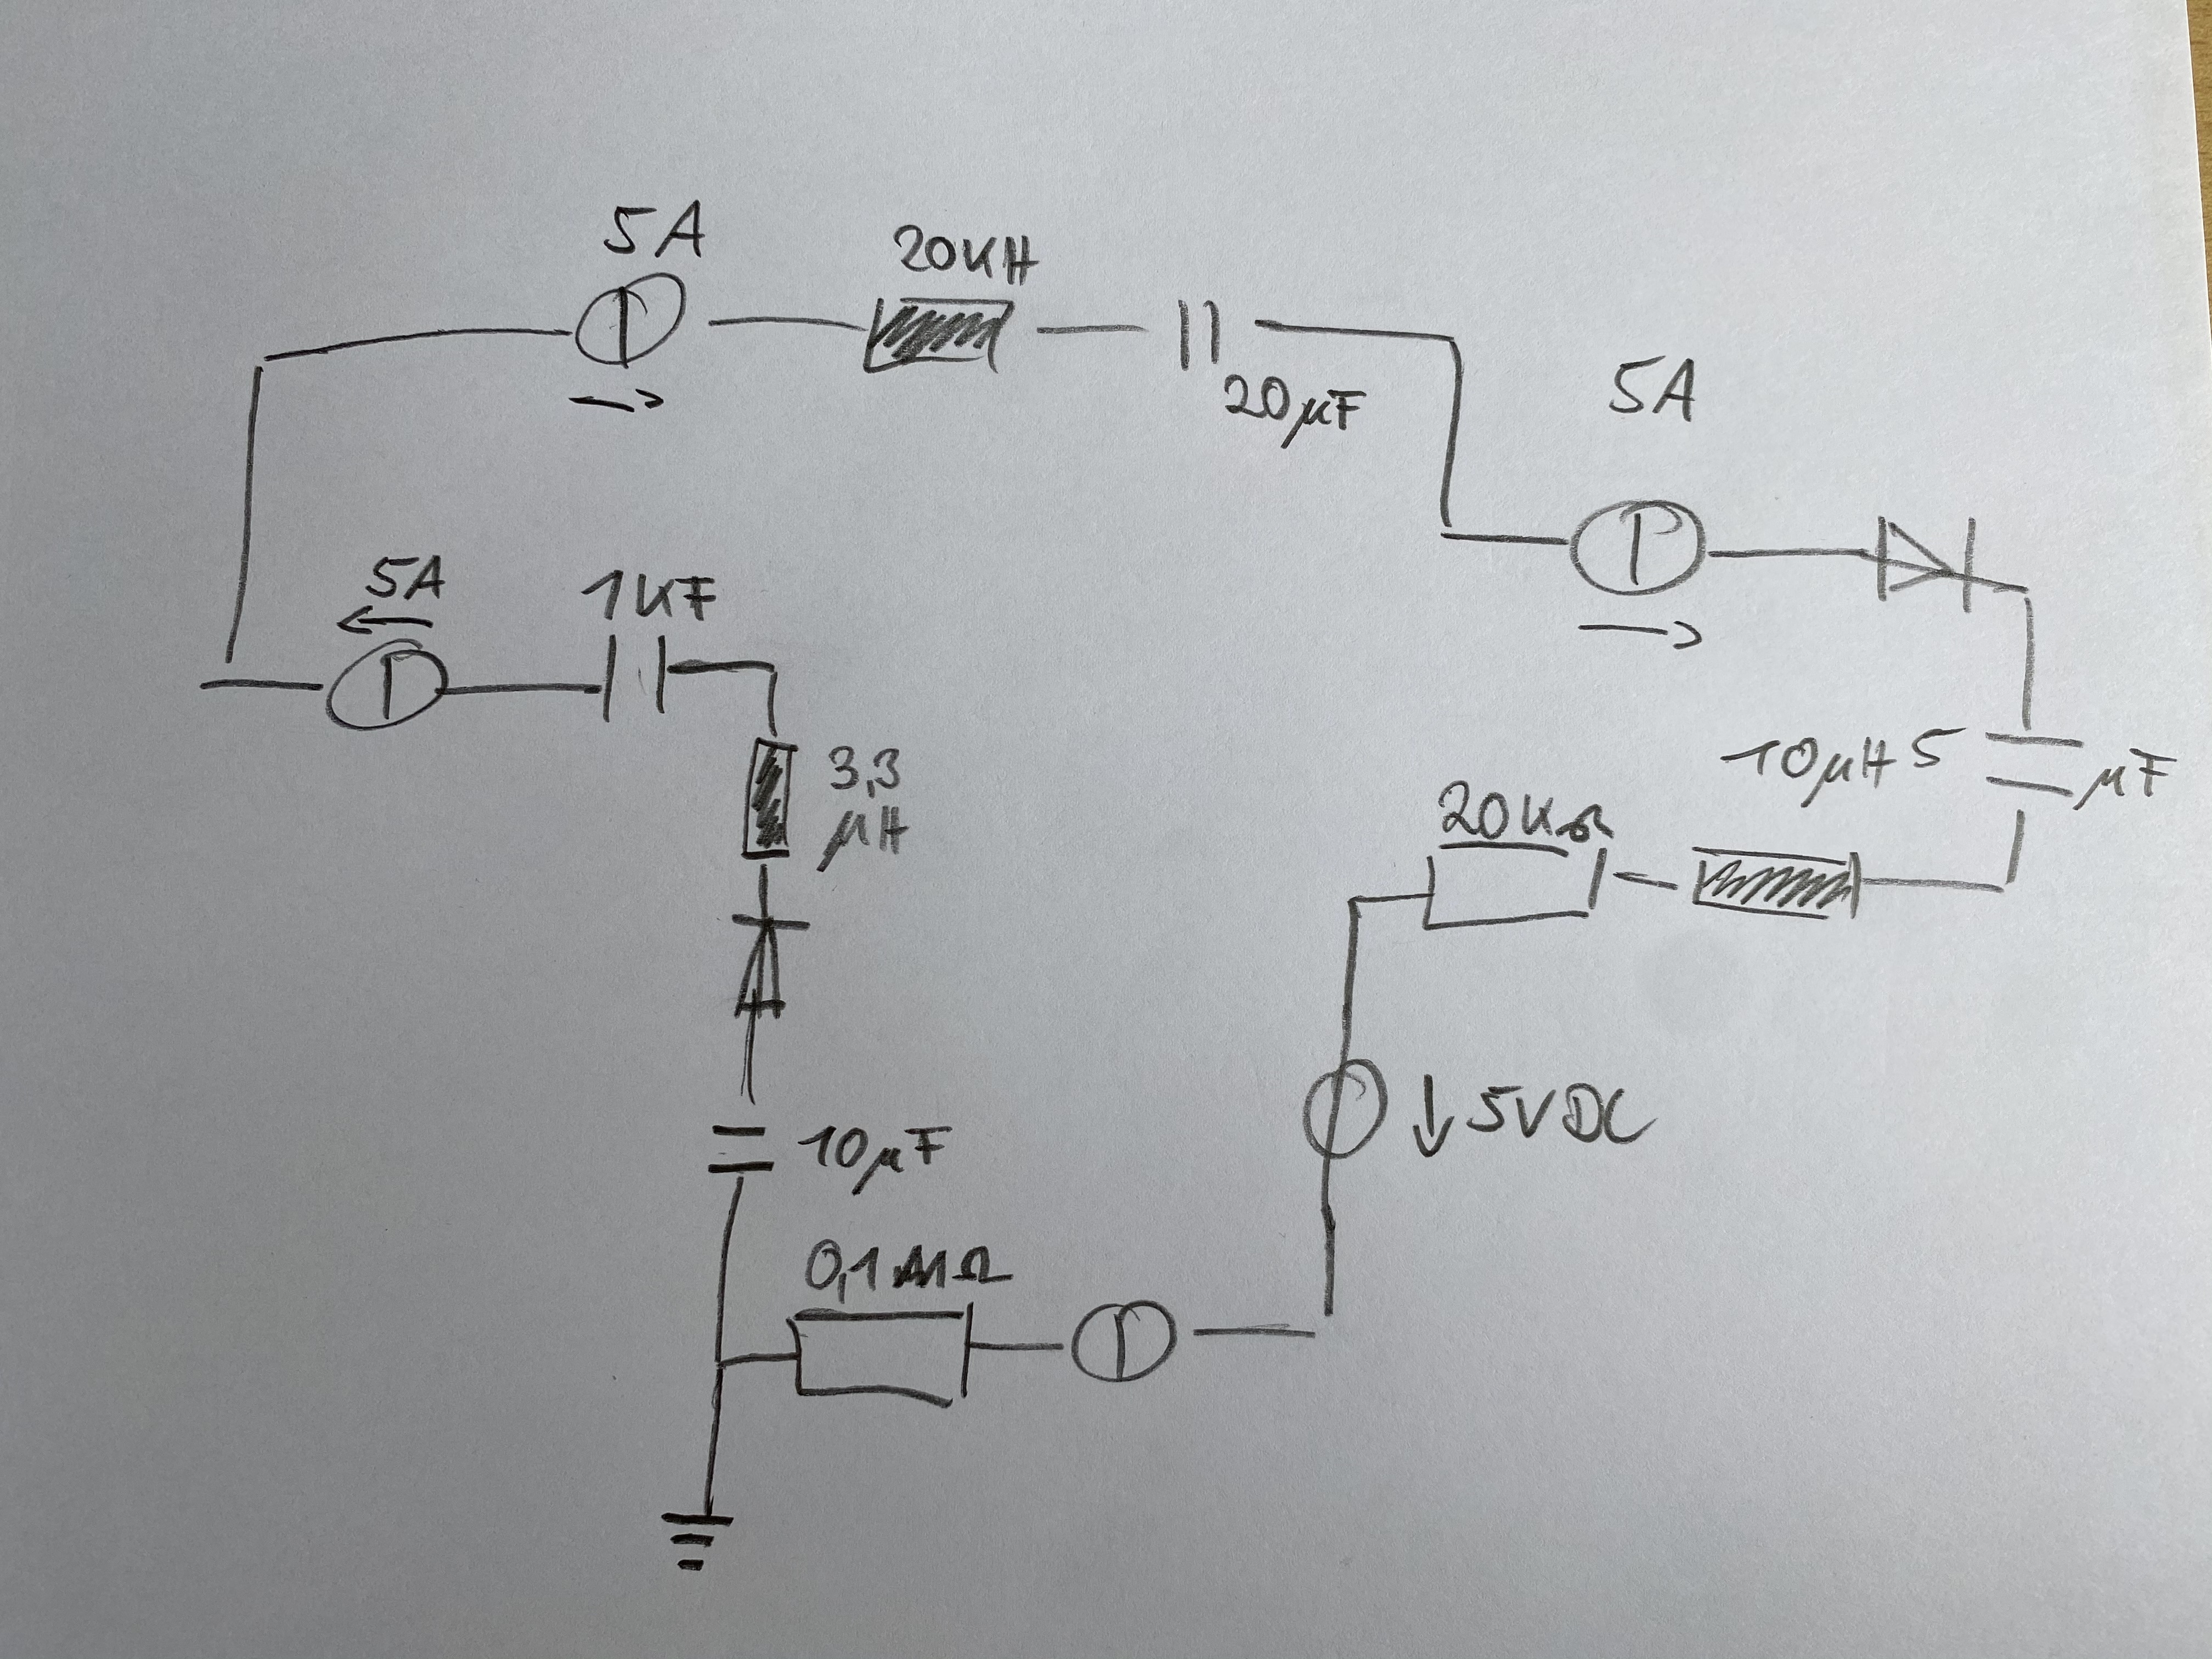 5A
20KH
20µF
5A
5A
1KF
3,3
µH
10µH
5 µF
20KΩ
5V DC
10µF
0,1MΩ